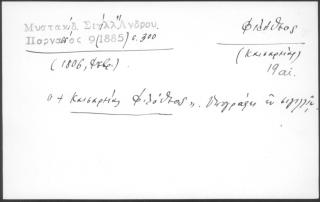 Μυστακίδ. Σιγίλλ. Άνδρου.
Παρνασσός 9(1885) σ. 300
(1806, Φεβρ.)
Φιλόθεος
(Καισαρείας)
19 αἰ.
ὁ + Καισαρείας Φιλόθεος ". Ὑπογράφει ἐν σιγιλλίῳ.